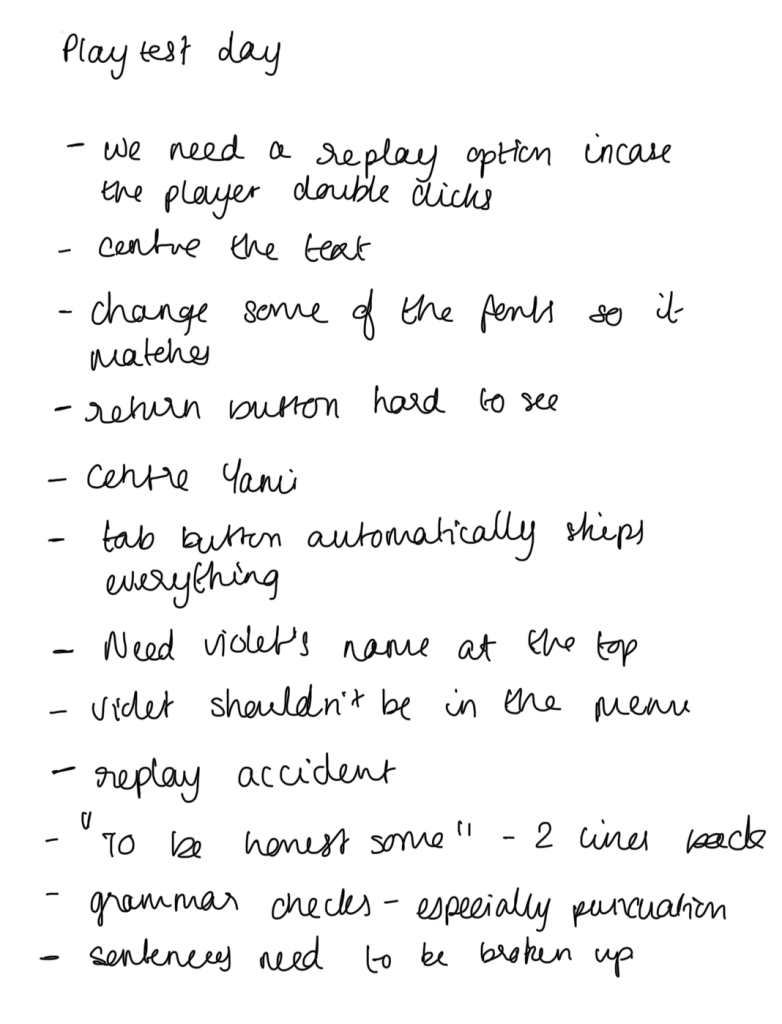 Play test day
- we need a replay option incase
the player double clicks
- centre the text
- change some of the fonts so it
matches
- return button hard to see
- centre Yami
- tab button automatically skips
everything
- Need violet's name at the top
- violet shouldn't be in the menu
- replay accident
- "To be honest some" - 2 lines back
- grammar checks - especially puncuation
- sentences need to be broken up